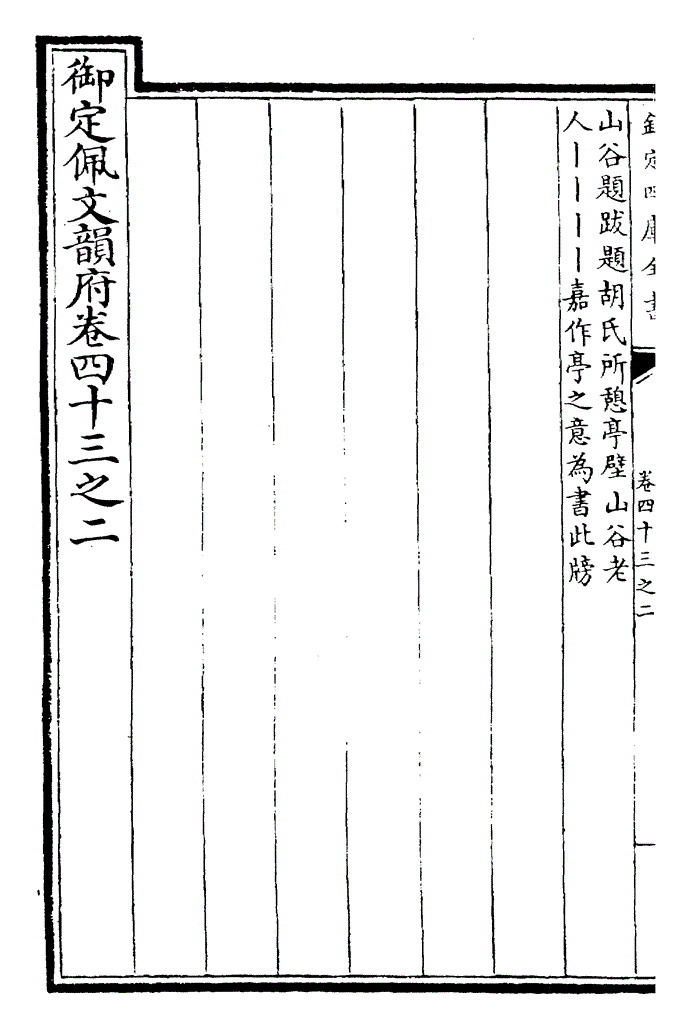 欽定四庫全書
卷四十三之二
山谷題跋題胡氏所憩亭壁山谷老
人丨丨丨丨嘉作亭之意為書此牓
御定佩文韻府卷四十三之二